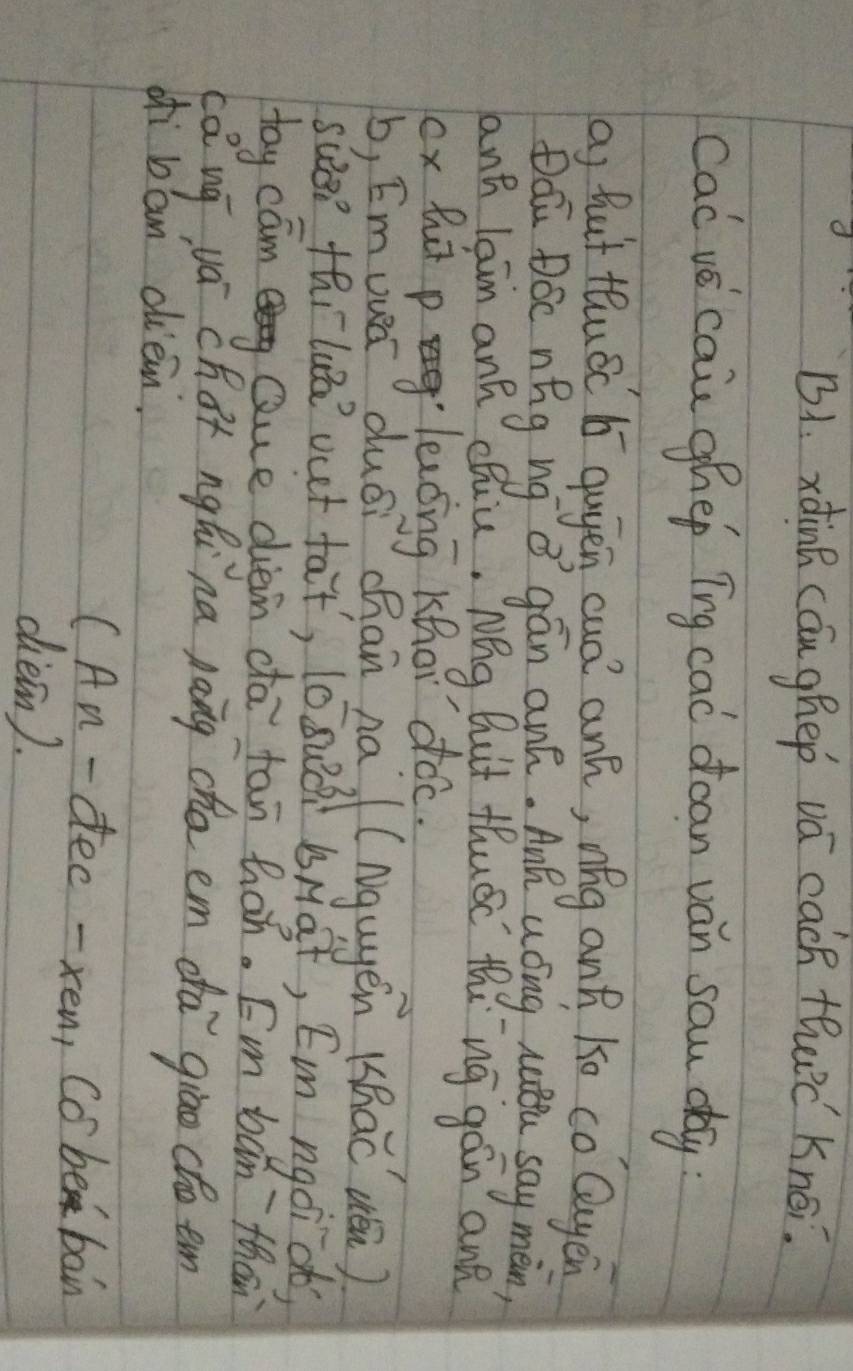 B1. xđịnh câu ghép và cách thức Knối.
Các vế câu ghép Trg các đoạn văn sau đây:
a, hút thuốc là quyền của anh, nhg anh ko có Quyền
Đầu Độc nhg ng ở gần anh. Anh uống rượu say mềm,
anh làm anh chịu. Nhg hút thuốc thì ng gần anh
cx hít p luồng khói độc.
(Nguyễn Khắc viện)
b, Em vừa duỗi chân ra
sưởi thì lửa vụt tắt, lò sưởi bMất, Em ngồi đó,
tay cầm Que diêm đã tàn hẳn. Em bần thần
cả ng, và chợt nghĩ ra rằng cha em đã giao cho em
đi bán diêm.
(An-đec-xen, Cô bé bán
diêm).